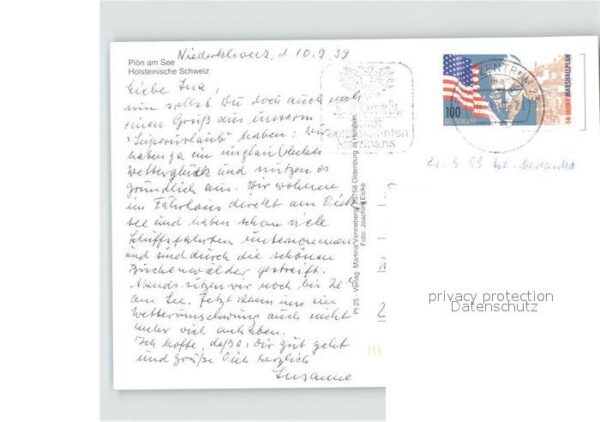 Niederkleveez, d 10.9.99
Plön am See
Holsteinische Schweiz
Liebe Inka,
nun sollst Du doch auch noch
einen Gruß aus unserem
haben: Wir
haben ja ein unglaubliches
Wetterglück und nutzen es
gründlich aus. Wir wohnen
im Fährhaus direkt am Diek-
see und haben schon viele
Schiffsfahrten unternommen
und sind durch die schönen
Buchenwälder gestreift.
Abends sitzen wir noch bis 20 h
am See. Jetzt kann uns ein
Wetterumschwung auch nicht
mehr viel anhaben.
Ich hoffe, daß es Dir gut geht
und grüße Dich herzlich
Susanne
Pl 25 Verlag Martina Venneberg 23758 Oldenburg in Holstein
Foto: Joachim Eicke
100
50 JAHRE MARSHALLPLAN
BRIEFZENTRUM
privacy protection
Datenschutz